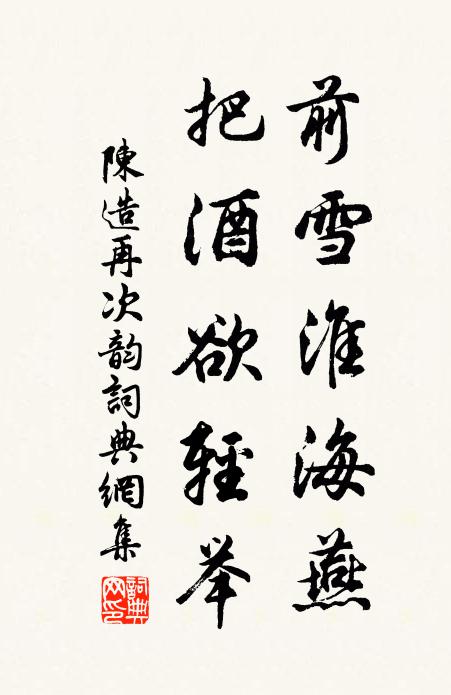 前雪淮海燕
把酒欲輕举
陳造再次韵詞典網集
詞典
网印